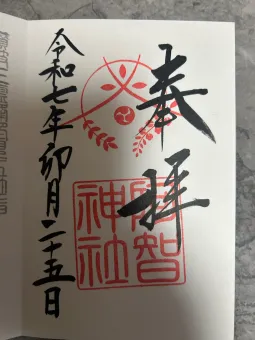 奉拝
阿智
神社
令和七年卯月二十五日